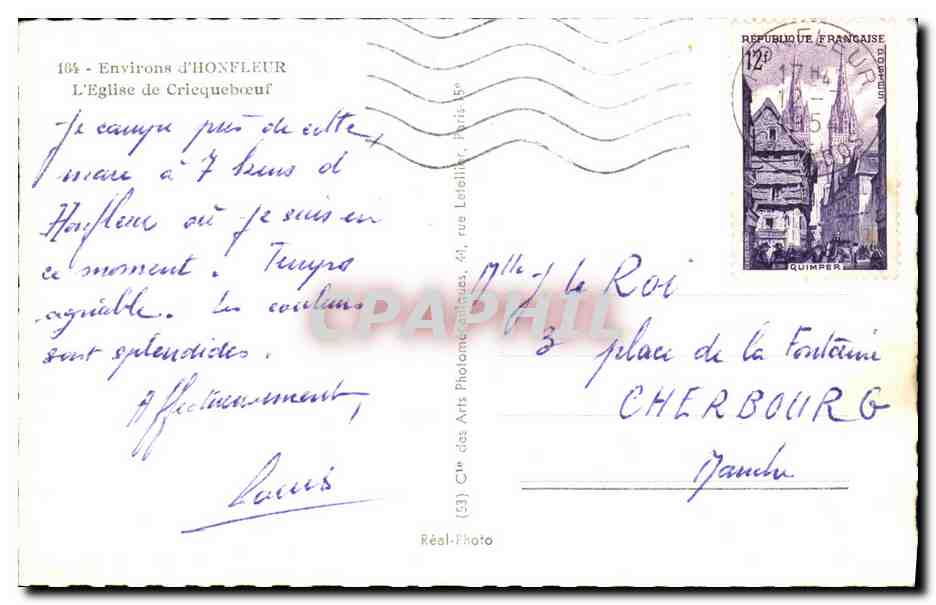 164 - Environs d'HONFLEUR
L'Eglise de Cricquebœuf
Je campe près de cette
mare à 7 kms d
Honfleur où je suis en
ce moment. Temps
agréable. Les couleurs
sont splendides.
Affectueusement,
Louis
(53) Cie des Arts Photomécaniques, 44, rue Letellier, Paris-15e
Réal-Photo
RÉPUBLIQUE FRANÇAISE
12F
POSTES
QUIMPER
HONFLEUR
17 H
Mlle J le Roi
3 place de la Fontaine
CHERBOURG
Manche
CPARAMA